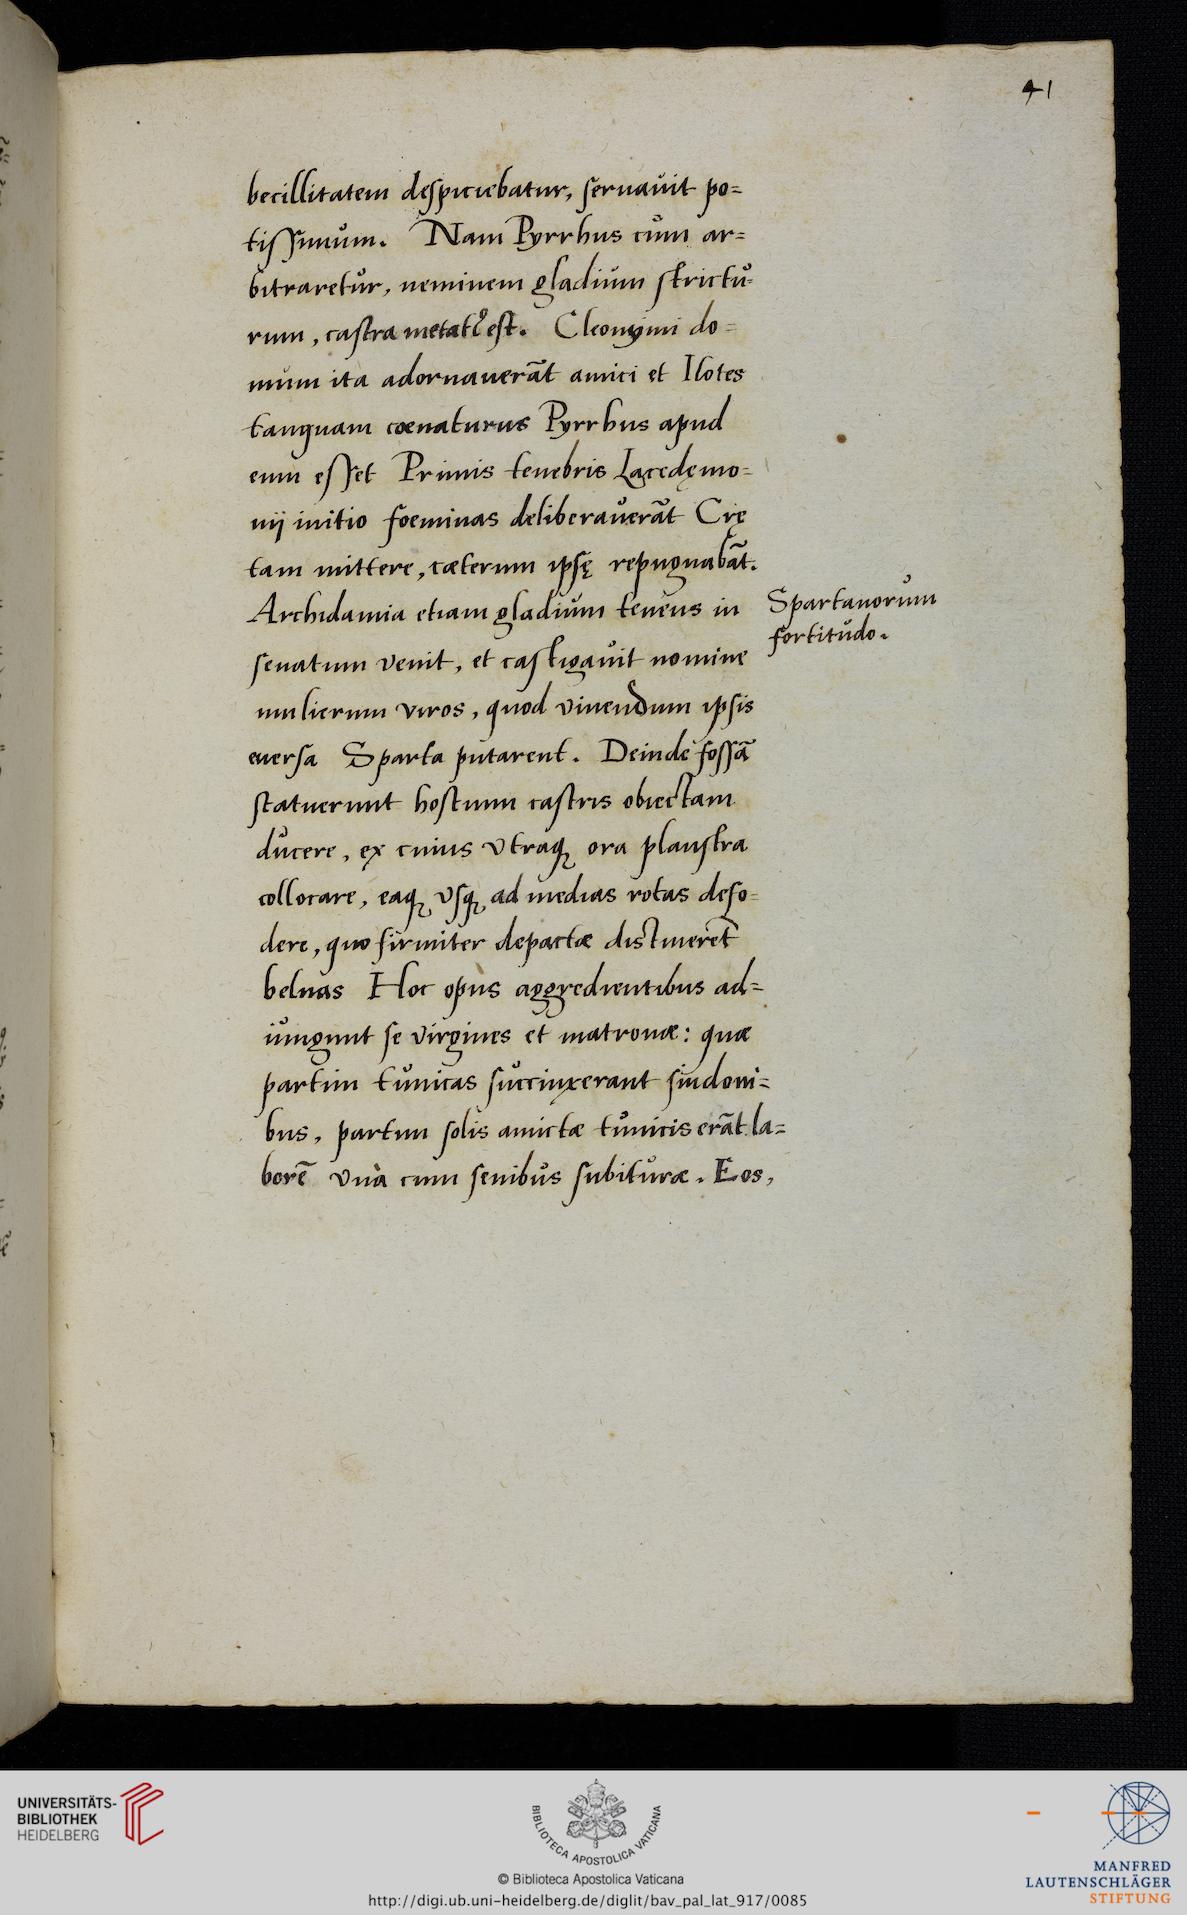 41
becillitatem despiciebatur, seruauit po=
tissimum. Nam Pyrrhus cum ar=
bitraretur, neminem gladium strictu=
rum, castra metatꝰ est. Cleonymi do=
mum ita adornauerāt amici et Ilotes
tanquam coenaturus Pyrrhus apud
eum esset Primis tenebris Lacedęmo=
nij initio foeminas deliberauerāt Crę
tam mittere, cæterum ipsę repugnabāt.
Archidamia etiam gladium tenens in
senatum venit, et castigauit nomine
mulierum viros, quod viuendum ipsis
euersa Sparta putarent. Deinde fossā
statuerunt hostium castris obiectam
ducere, ex cuius vtraqꝫ ora plaustra
collocare, eaqꝫ vsqꝫ ad medias rotas defo=
dere, quo firmiter depactæ distinerēt
beluas Hoc opus aggredientibus ad=
iungunt se virgines et matronæ: quæ
partim tunicas succinxerant sindoni=
bus, partim solis amictæ tunicis erāt la=
borē vnà cum senibus subituræ. Eos,
Spartanorum
fortitudo.
UNIVERSITÄTS-
BIBLIOTHEK
HEIDELBERG
BIBLIOTECA APOSTOLICA VATICANA
© Biblioteca Apostolica Vaticana
http://digi.ub.uni-heidelberg.de/diglit/bav_pal_lat_917/0085
MANFRED
LAUTENSCHLÄGER
STIFTUNG